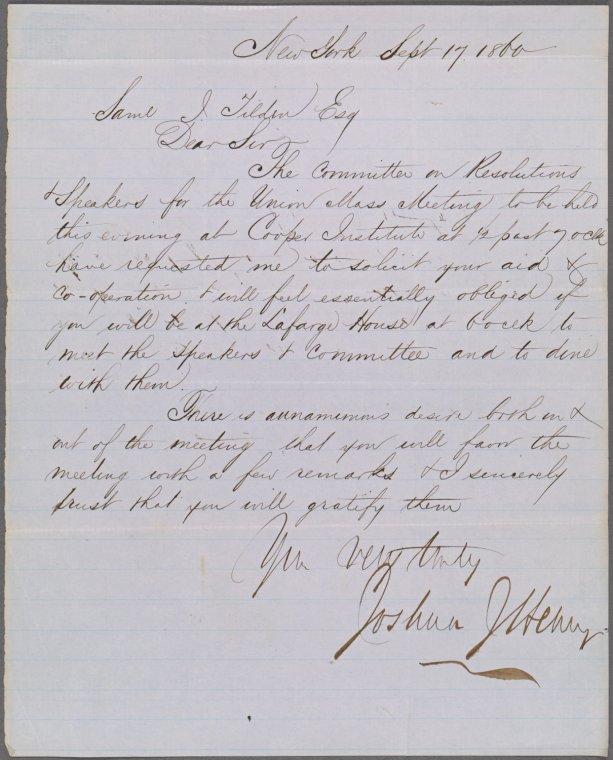 New York Sept 17. 1860
Saml J Tilden Esq
Dear Sir
The Committee on Resolutions
& Speakers for the Union Mass Meeting to be held
this evening at Cooper Institute at ½ past 7 oclk
have requested me to solicit your aid &
co-operation & will feel essentially obliged if
you will be at the Lafarge House at 6 oclk to
meet the speakers & Committee and to dine
with them.
There is a unanimous desire both in &
out of the meeting that you will favor the
meeting with a few remarks & I sincerely
trust that you will gratify them
Your very truly
Joshua J Henry